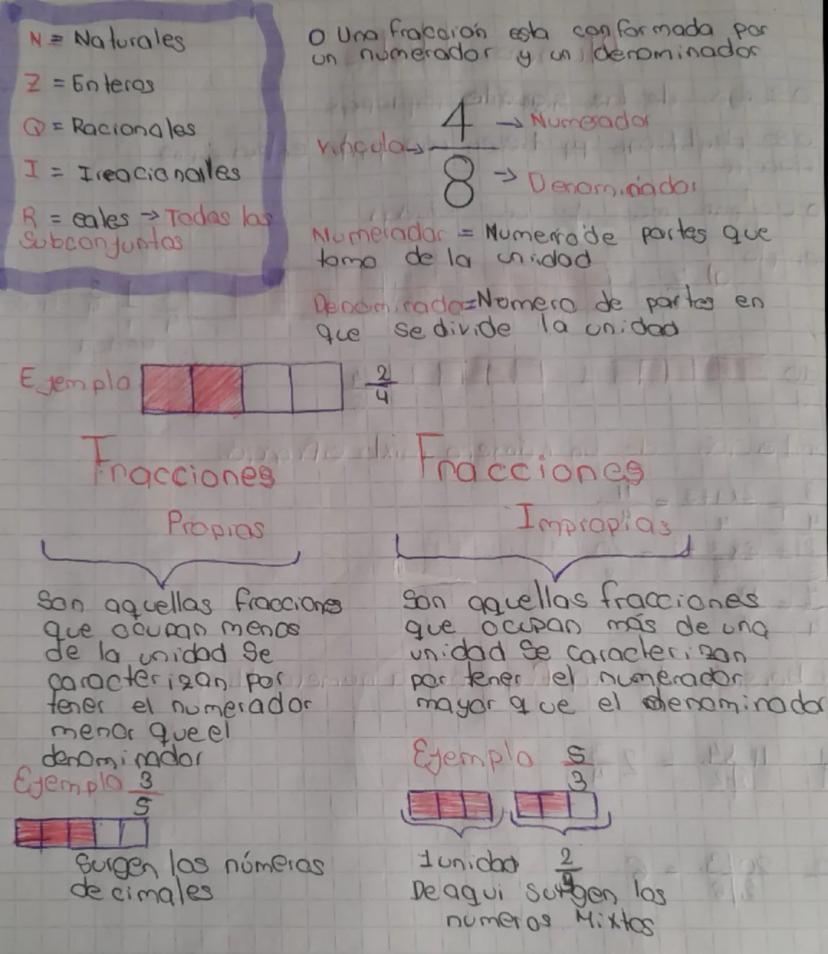 N = Naturales
Z = Enteros
Q = Racionales
I = Ireacionales
R = eales → Todas las
Subconjuntas
O Una fracción esta conformada por
un numerador y un denominador
4 → Numerador
vinculo →
8 → Denominador
Numerador = Numero de partes que
tomo de la unidad
Denominado = Nomero de partes en
que se divide la unidad
Ejemplo 2
4
Fracciones
Propias
Son aquellas fracciones
que ocupan menos
de la unidad se
caracterizan por
tener el numerador
menor que el
denominador
Ejemplo 3
5
Surgen los números
decimales
Fracciones
Impropias
Son aquellas fracciones
que ocupan más de una
unidad se caracterizan
por tener el numerador
mayor que el denominador
Ejemplo 5
3
1 unidad 2
De aqui surgen los
numeros Mixtos